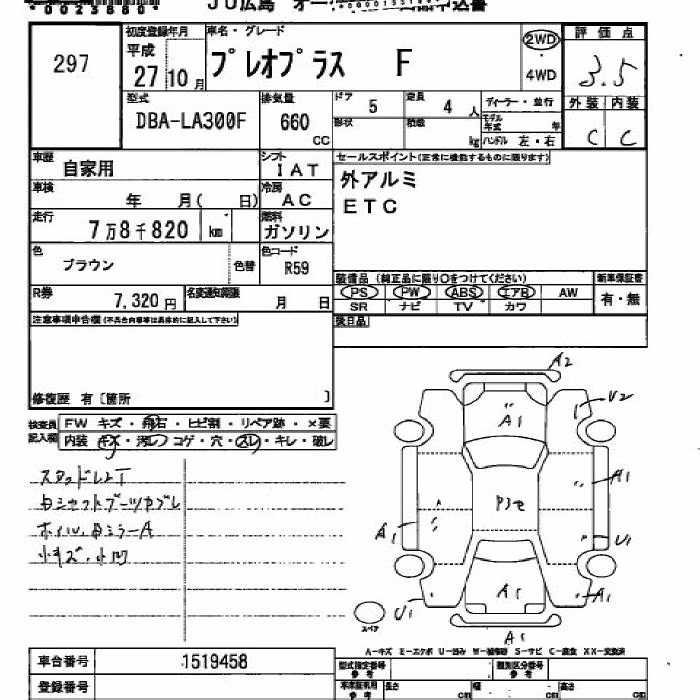 0023880
JU広島 オー
297
初度登録年月
平成
27 10月
車名・グレード
プレオプラス F
2WD
4WD
評価点
3.5
型式
DBA-LA300F
排気量
660
CC
ドア
5
定員
4 人
形状
積載
kg
ディーラー・並行
モデル年式 年
ハンドル 左・右
外装 内装
C C
車歴
自家用
シフト
IAT
セールスポイント(正常に機能するものに限ります)
外アルミ
ETC
車検
年 月( 日)
冷房
AC
走行
7万8千820 km
燃料
ガソリン
色
ブラウン
色替
色コード
R59
装備品 (純正品に限り○をつけてください)
新車保証書
PS PW ABS エアB AW
SR ナビ TV カワ
有・無
R券
7,320 円
名変通知期限
月 日
注意事項申告欄(不具合内容等は具体的に記入して下さい)
後日品
修復歴 有〔箇所 〕
検査員
記入欄
FW キズ・飛石・ヒビ割・リペア跡・×要
内装 キズ・汚レ・コゲ・穴・スレ・キレ・破レ
ホイル
小キズ、小凹
A2
U2
A1
A1
A1
U1
A1
A1
U1
A1
スペア
A-キズ E-エクボ U-凹み W-補修跡 S-サビ C-腐食 XX-交換済
車台番号
1519458
登録番号
型式指定番号
参考
類別区分番号
参考
車庫証明用
参考
長さ
cm
幅
cm
高さ
cm